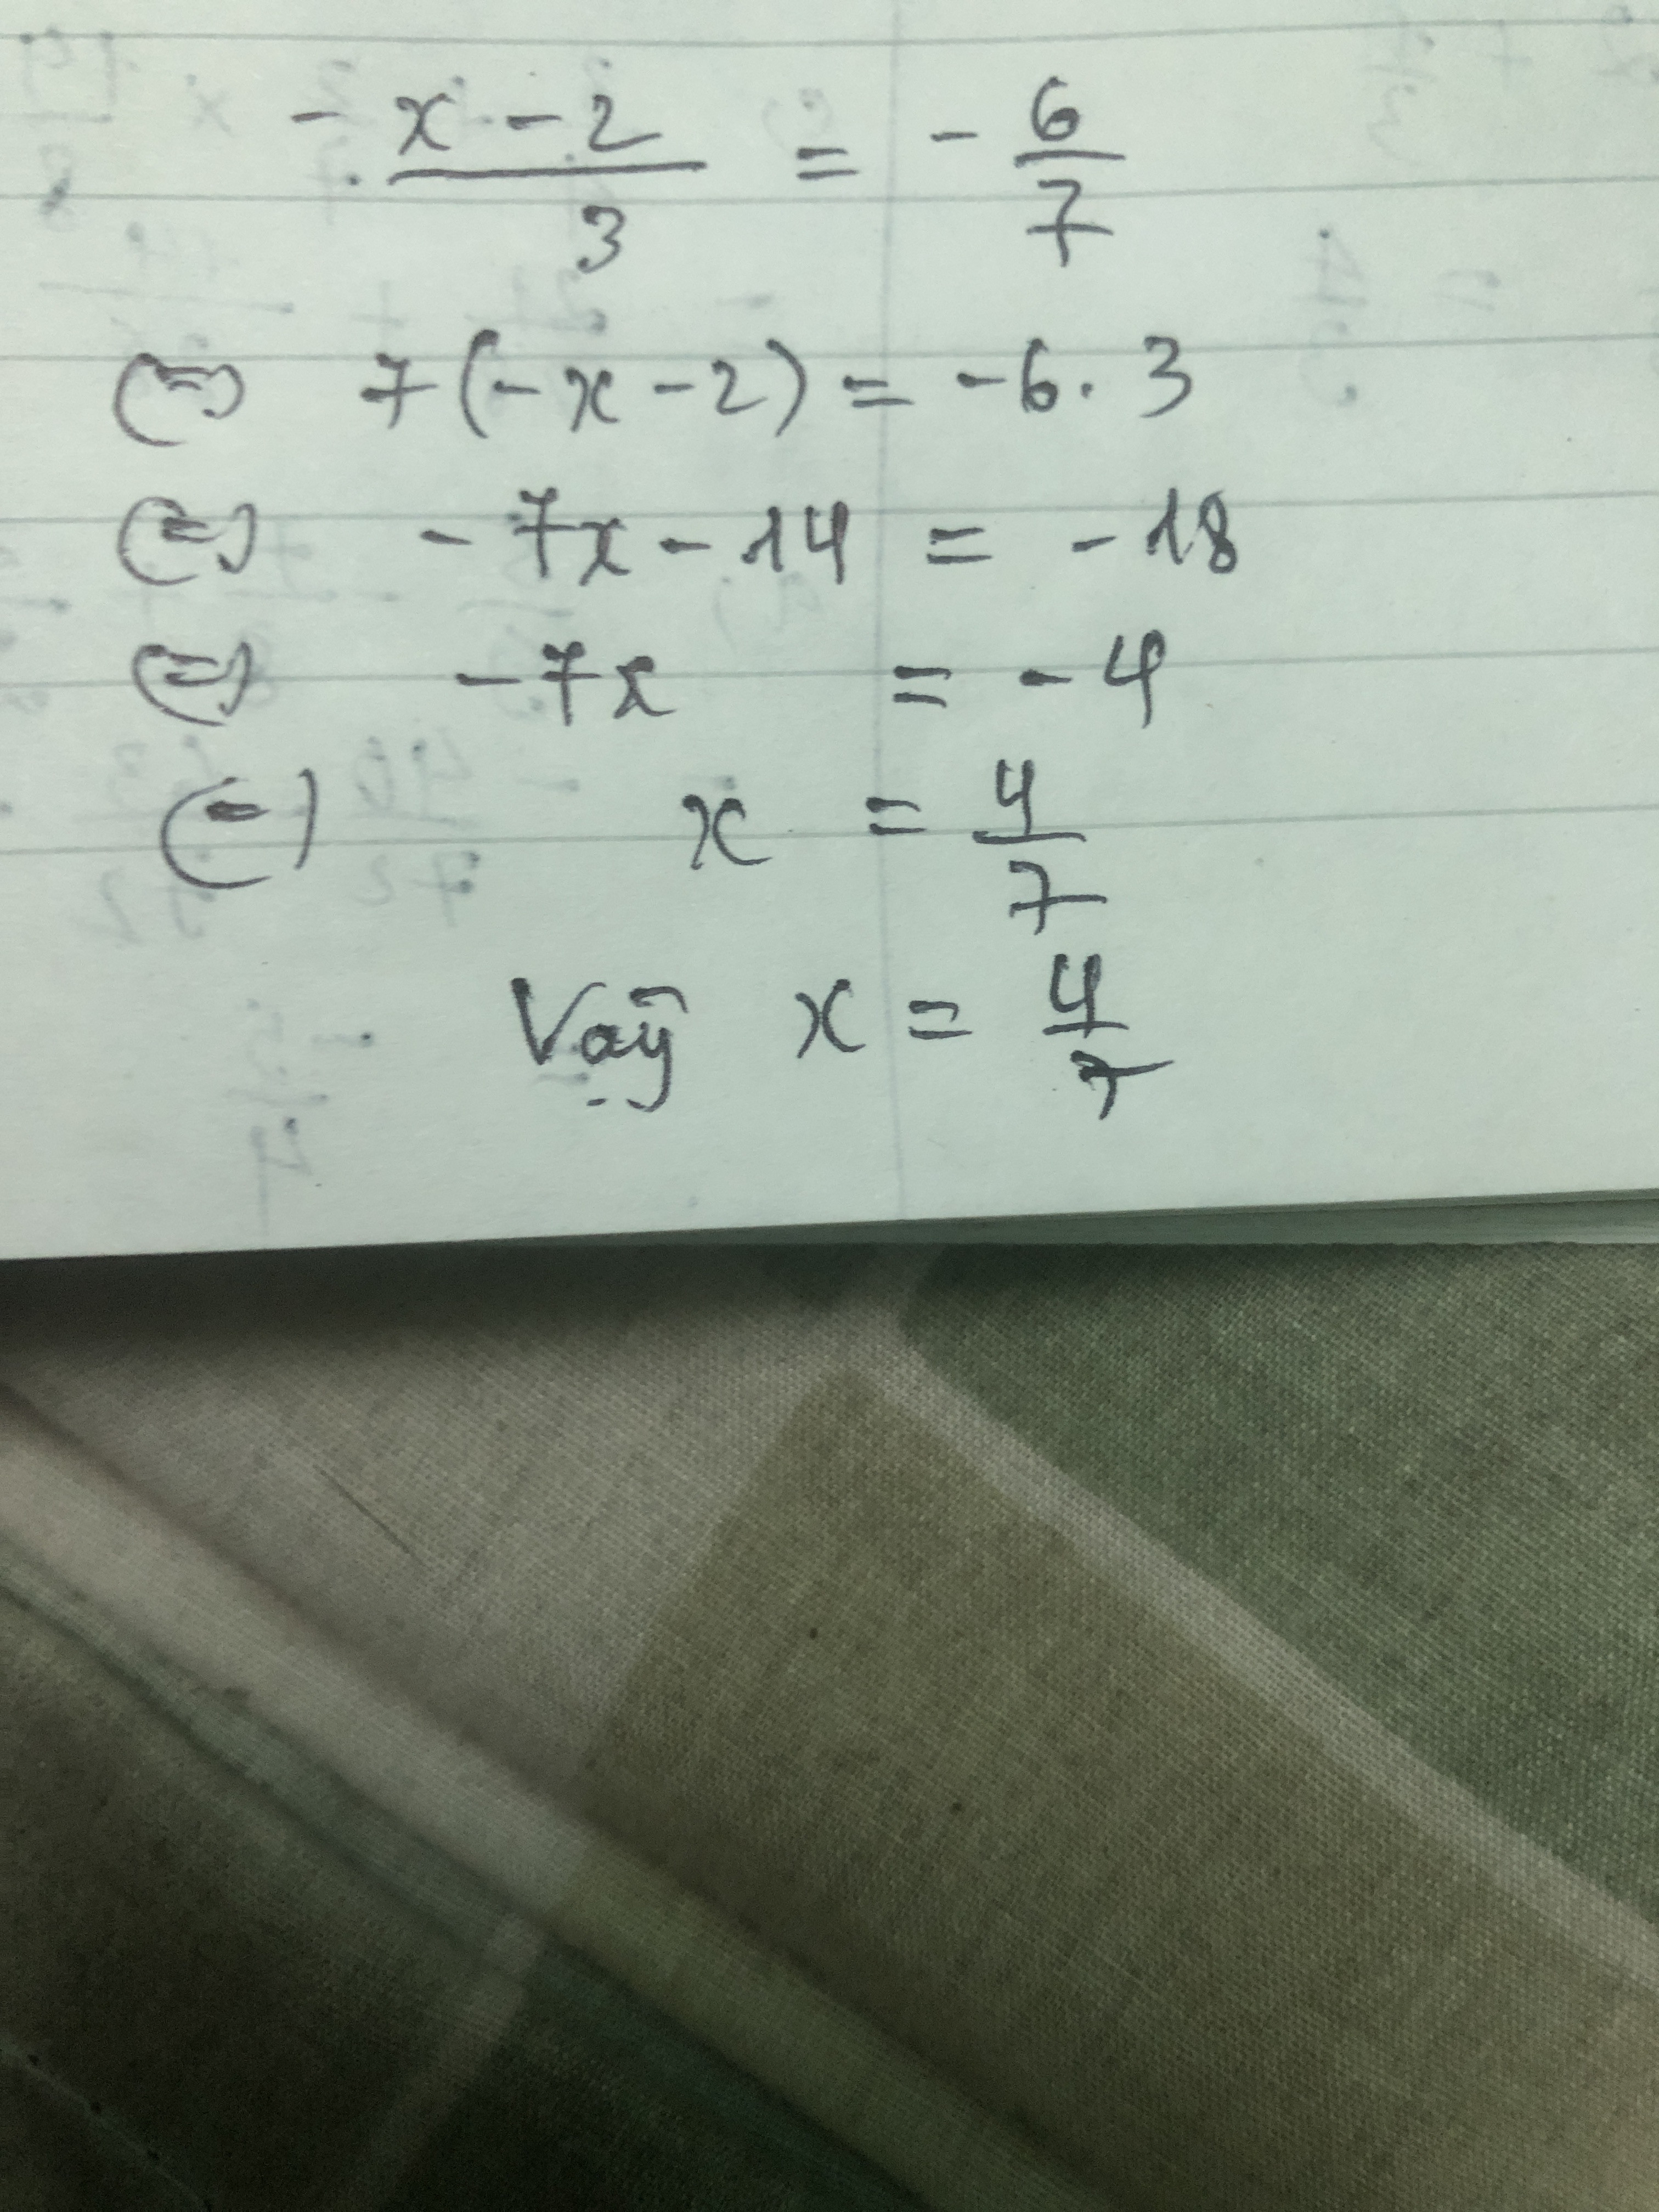 - x - 2 / 3 = - 6/7
(=) 7(-x-2) = -6.3
(=) -7x - 14 = -18
(=) -7x = -4
(=) x = 4/7
Vậy x = 4/7